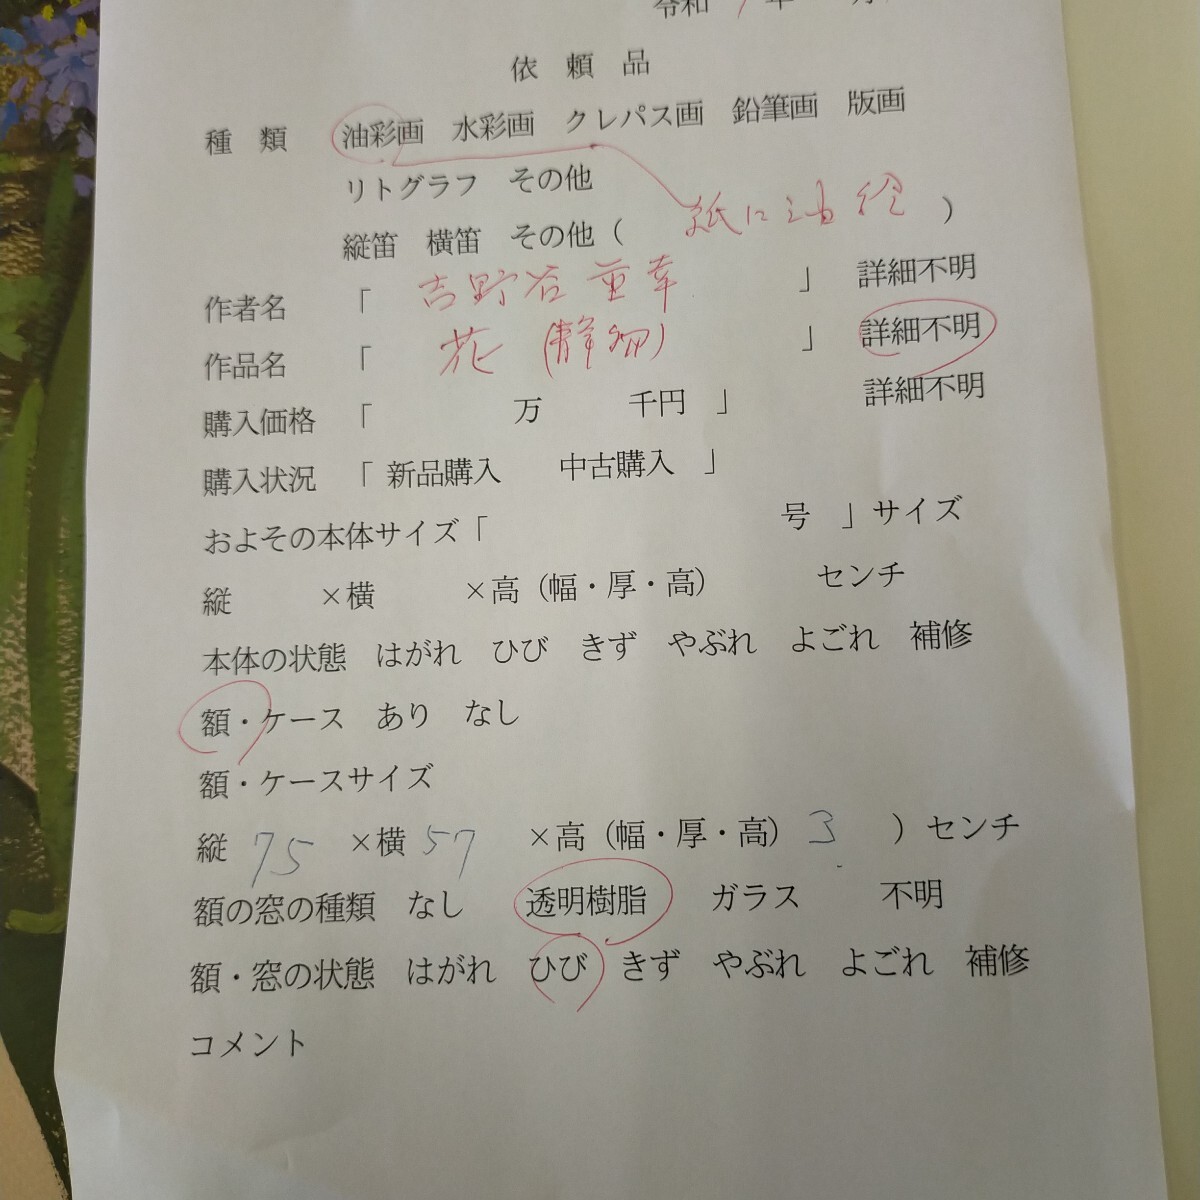 令和 7 年 月
依 頼 品
種 類 油彩画 水彩画 クレパス画 鉛筆画 版画
リトグラフ その他
縦笛 横笛 その他( 紙に油絵 )
作者名 「 吉野谷重幸 」 詳細不明
作品名 「 花 (静物) 」 詳細不明
購入価格 「 万 千円 」 詳細不明
購入状況 「 新品購入 中古購入 」
およその本体サイズ「 号 」サイズ
縦 ×横 ×高(幅・厚・高) センチ
本体の状態 はがれ ひび きず やぶれ よごれ 補修
額・ケース あり なし
額・ケースサイズ
縦 75 ×横 57 ×高(幅・厚・高) 3 )センチ
額の窓の種類 なし 透明樹脂 ガラス 不明
額・窓の状態 はがれ ひび きず やぶれ よごれ 補修
コメント